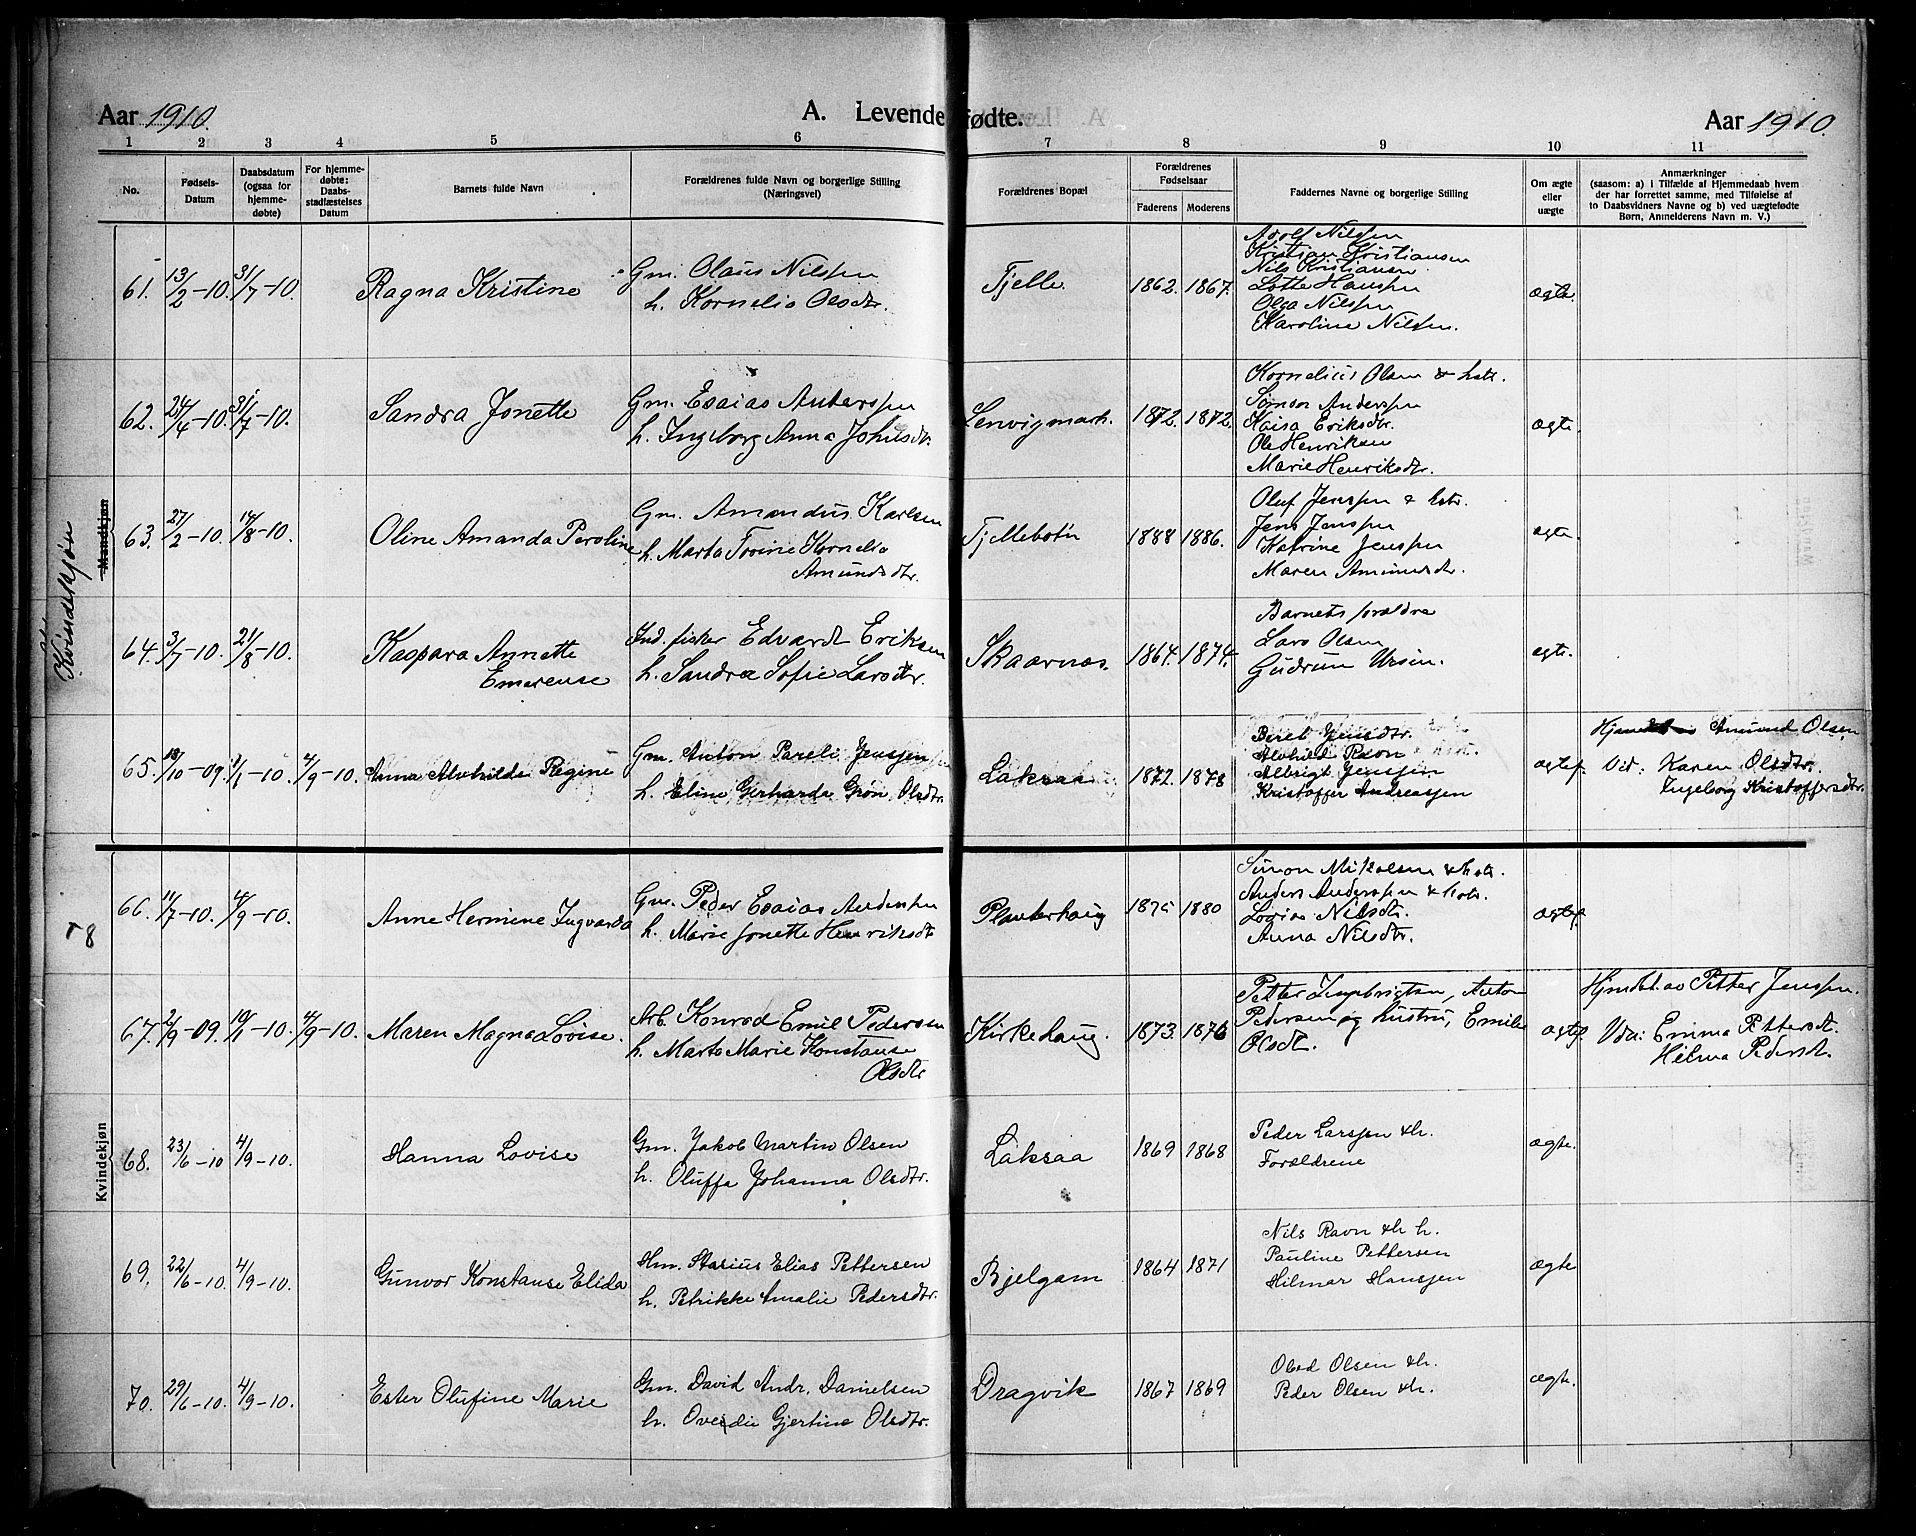 Aar 1910. A. Levendefødte. Aar 1910.
1 2 3 4 5 6 7 8 9 10 11
No.
Fødsels-
Datum
Daabsdatum
(ogsaa for
hjemme-
døbte)
For hjemme-
døbte:
Daabs-
stadfæstelses
Datum
Barnets fulde Navn
Forældrenes fulde Navn og borgerlige Stilling
(Næringsvei)
Forældrenes Bopæl
Forældrenes
Fødselsaar
Faderens Moderens
Faddernes Navne og borgerlige Stilling
Om ægte
eller
uægte
Anmærkninger
(saasom: a) i Tilfælde af Hjemmedaab hvem
der har forrettet samme, med Tilføielse af
to Daabsvidners Navne og b) ved uægtefødte
Børn, Anmelderens Navn m. V.)
Mandkjøn
Kvindekjøn
61. 13/2-10. 31/7-10. Ragna Kristine
Gm. Olaus Nilsen
h. Kornelia Olsdtr.
Fjelle. 1862. 1867.
Adolf Nilsen
Kristian Kristiansen
Nils Kristiansen
Lotte Hansen
Olga Nilsen
Karoline Nilsen.
ægte.
62. 24/4-10. 31/7-10. Sandra Jonette
Gm. Esaias Andersen
h. Ingeborg Anna Johnsdtr.
Lenvigmark. 1872. 1872.
Kornelius Olsen & hstr.
Simon Andersen
Kaisa Eriksdtr.
Ole Henriksen
Marie Henriksdtr.
ægte.
63. 27/2-10. 14/8-10. Oline Amanda Peroline
Gm. Amandus Karlsen
h. Marta Trine Kornelia
Amundsdtr.
Fjellebotn 1888 1886.
Oluf Jenssen & hstr.
Jens Jenssen
Katrine Jenssen
Maren Amundsdtr.
ægte.
64. 3/7-10. 21/8-10. Kaspara Annette
Emerense
Ind. fisker Edvardt Eriksen
h. Sandra Sofie Larsdtr.
Skaarnes. 1864. 1874.
Barnets forældre
Lars Olsen
Gudrun Ursin.
ægte.
65. 18/10-09. 1/1-10. 4/9-10. Anna Alvhilda Regine
Gm. Anton Pareli Jenssen
h. Eline Gerharda Grøn, Olsdtr
Laksaa 1872. 1878
Beret Jensdtr.
Alvhild Ravn
Albrigt Jenssen
Kristoffer Andreassen
ægtef.
Amund Olsen
Vid: Karen Olsdtr.
Ingeborg Kristoffersdtr.
T 8
66. 11/7-10. 4/9-10. Anne Hermine Ingvarda
Gm. Peder Esaias Andersen
h. Marie Jonette Henriksdtr
Planterhaug 1875 1880
Simon Mikalsen & hstr.
Anders Anderssen & hstr.
Lovise Nilsdtr.
Anna Nilsdtr.
ægtef.
67. 2/9-09. 10/1-10. 4/9-10. Maren Magna Lovise.
Arb. Konrad Emil Pedersen
h. Marta Marie Konstanse
Olsdtr
Kirkehaug. 1873. 1876
Petter Ingebrigtsen, Anton
Pedersen og hustru, Emilie
Olsdt.
ægtef.
Hjmdbt. av Petter Jenssen.
Vdn: Emma Pettersdt.
Hilma Pedersdt.
Kvindekjøn
68. 23/6-10 4/9-10. Hanna Lovise
Gm. Jakob Martin Olsen
h. Oluffa Johanna Olsdtr.
Laksaa 1869 1868
Peder Larssen & h.
Forældrene
ægte.
69. 22/6-10. 4/9-10. Gunvor Konstanse Elida
Hm. Stasius Elias Pettersen
h. Petrikke Amalie Pedersdtr.
Bjelgam 1864 1871
Nils Ravn & h h.
Pauline Pettersen
Hilmar Hanssen
ægte
70. 29/6-10. 4/9-10. Ester Olufine Marie
Gm. David Andr. Danielsen
h. Ovedie Gjertine Olsdtr.
Dragvik 1867 1869
Obed Olsen & h.
Peder Olsen & h.
ægte.